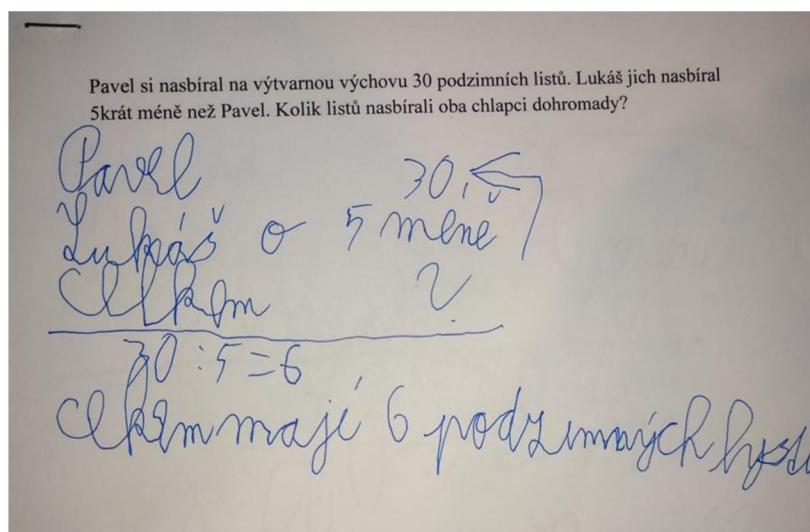 Pavel si nasbíral na výtvarnou výchovu 30 podzimních listů. Lukáš jich nasbíral
5krát méně než Pavel. Kolik listů nasbírali oba chlapci dohromady?
Pavel 30
Lukáš o 5 méně
Celkem ?
30 : 5 = 6
Celkem mají 6